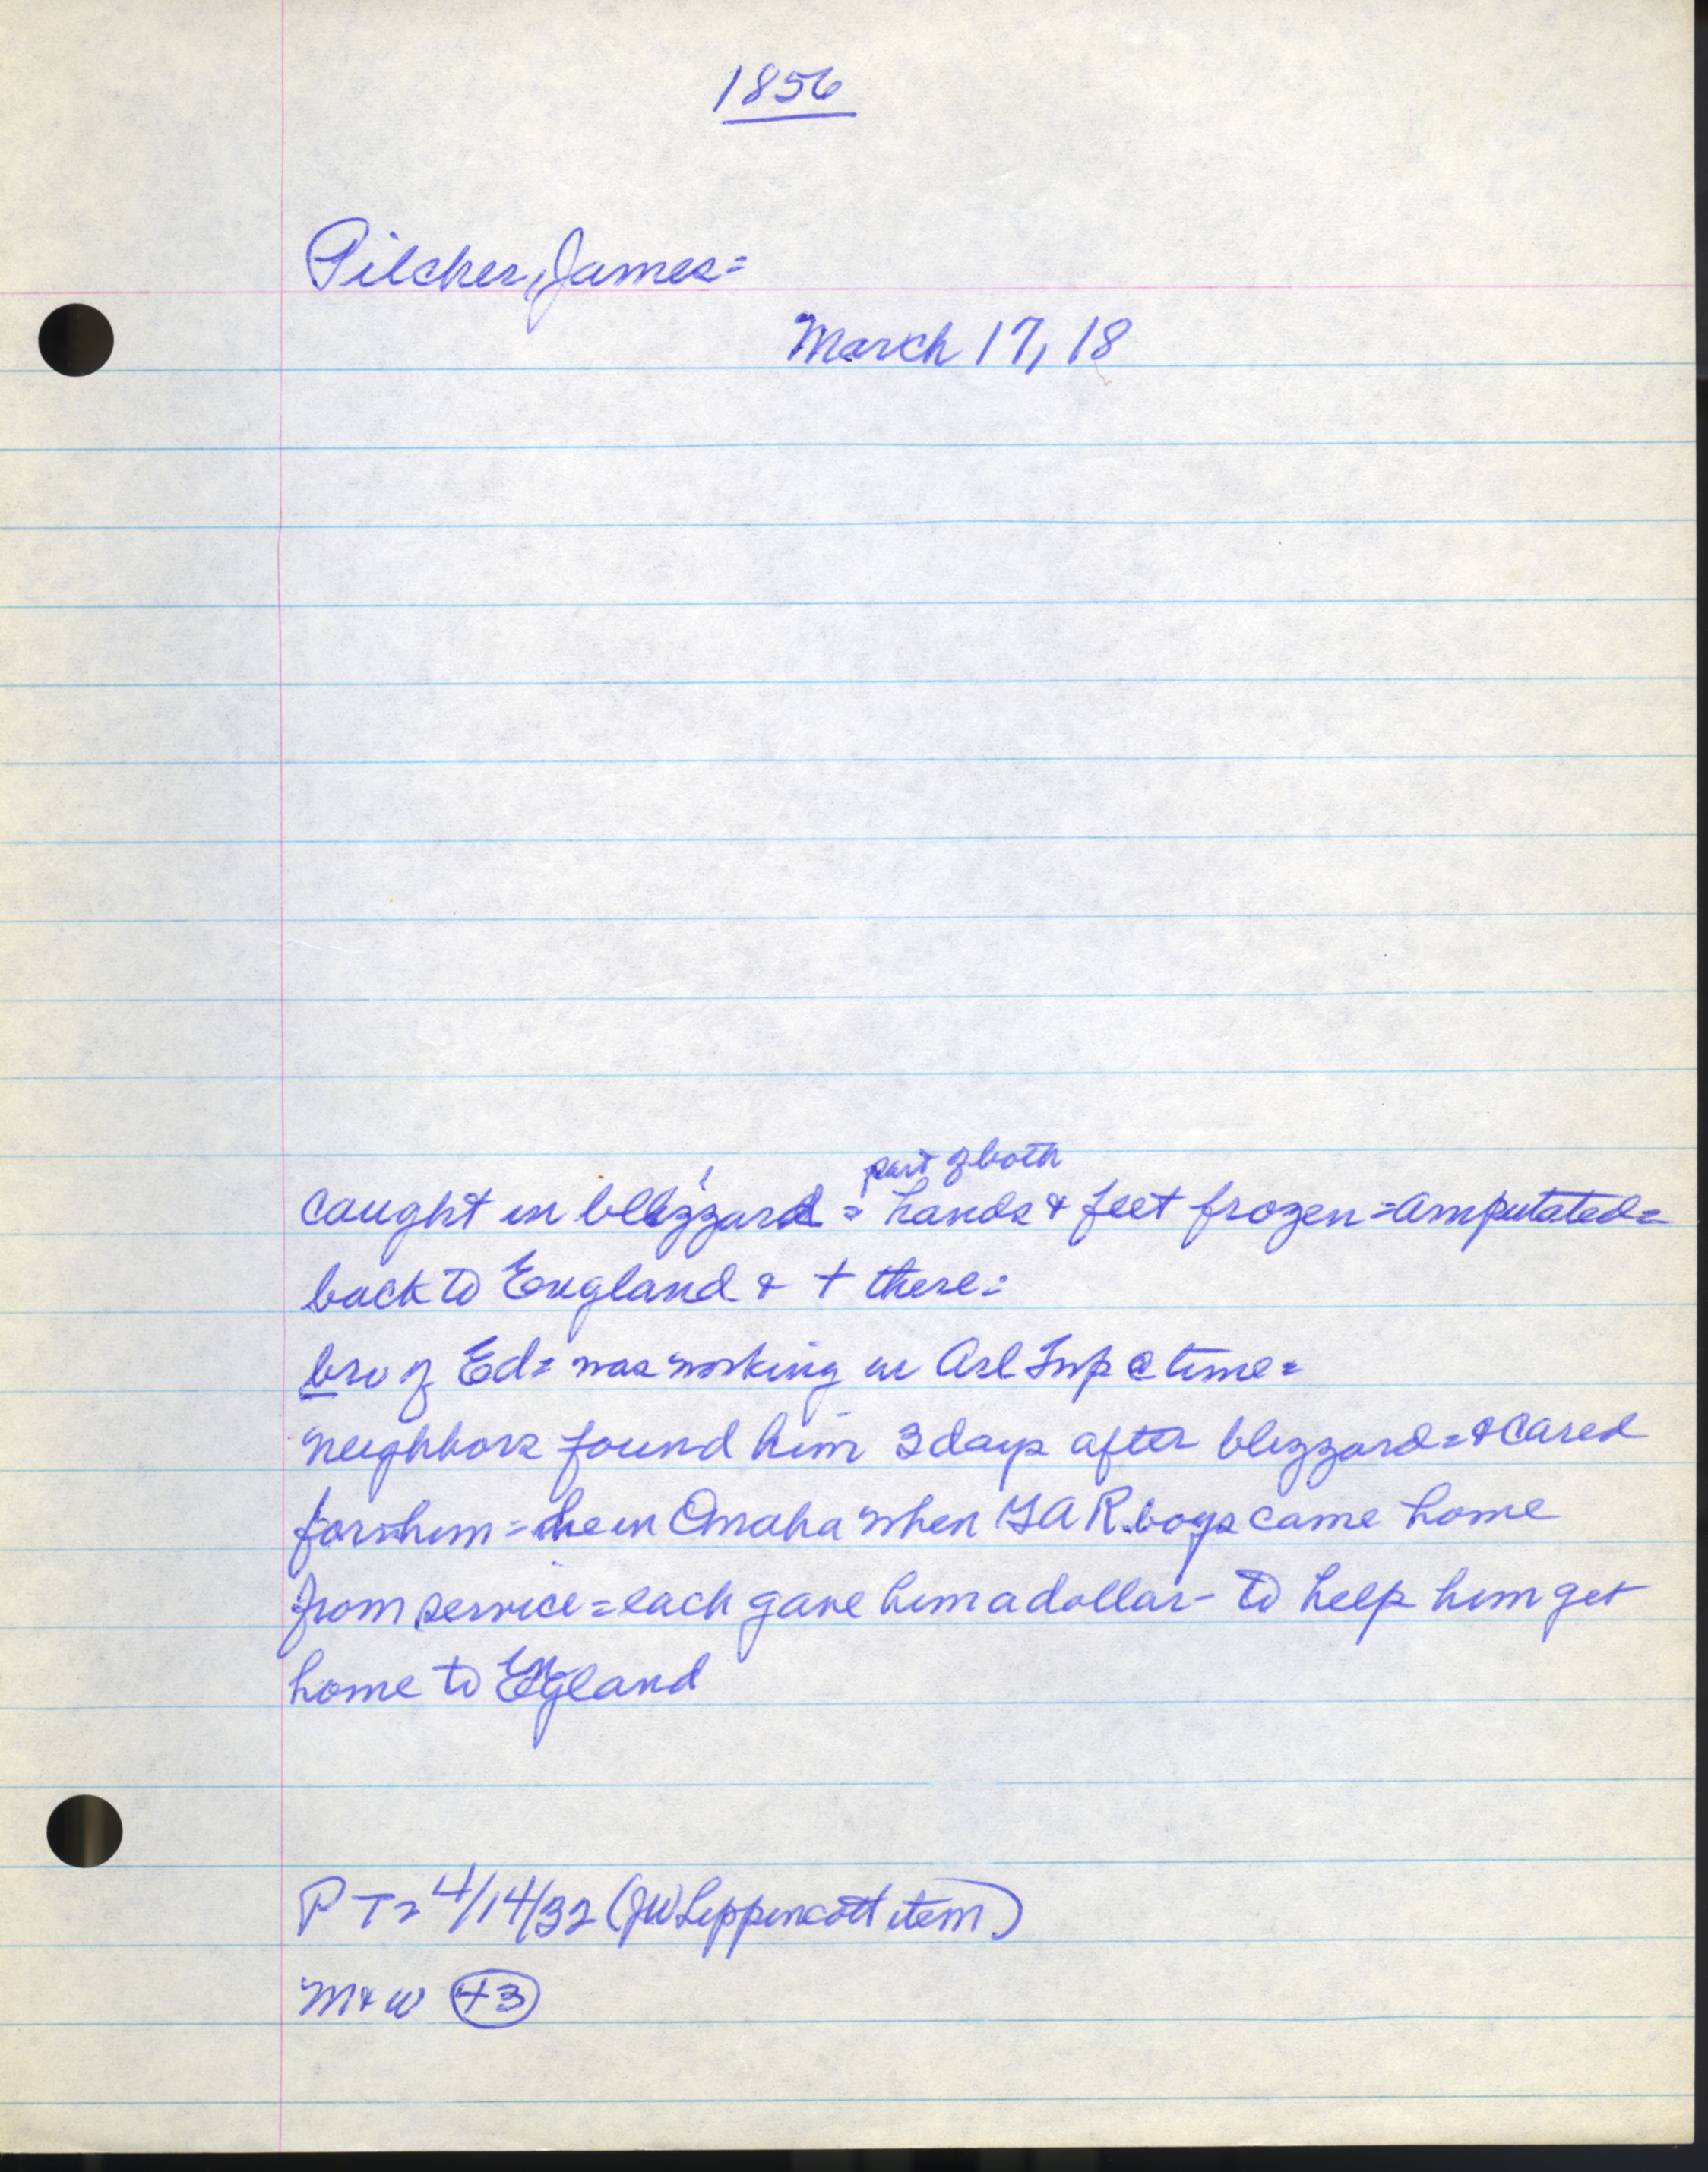 1856
Pilcher, James=
March 17, 18
part of both
caught in blizzard = hands & feet frozen = amputated=
back to England & + there=
bro of Ed= was working in Arl Twp @ time=
neighbors found him 3 days after blizzard = & cared
for him = he in Omaha when GAR boys came home
from service = each gave him a dollar - to help him get
home to England
P T= 4/14/32 (JW Lippencott item)
M & W 43